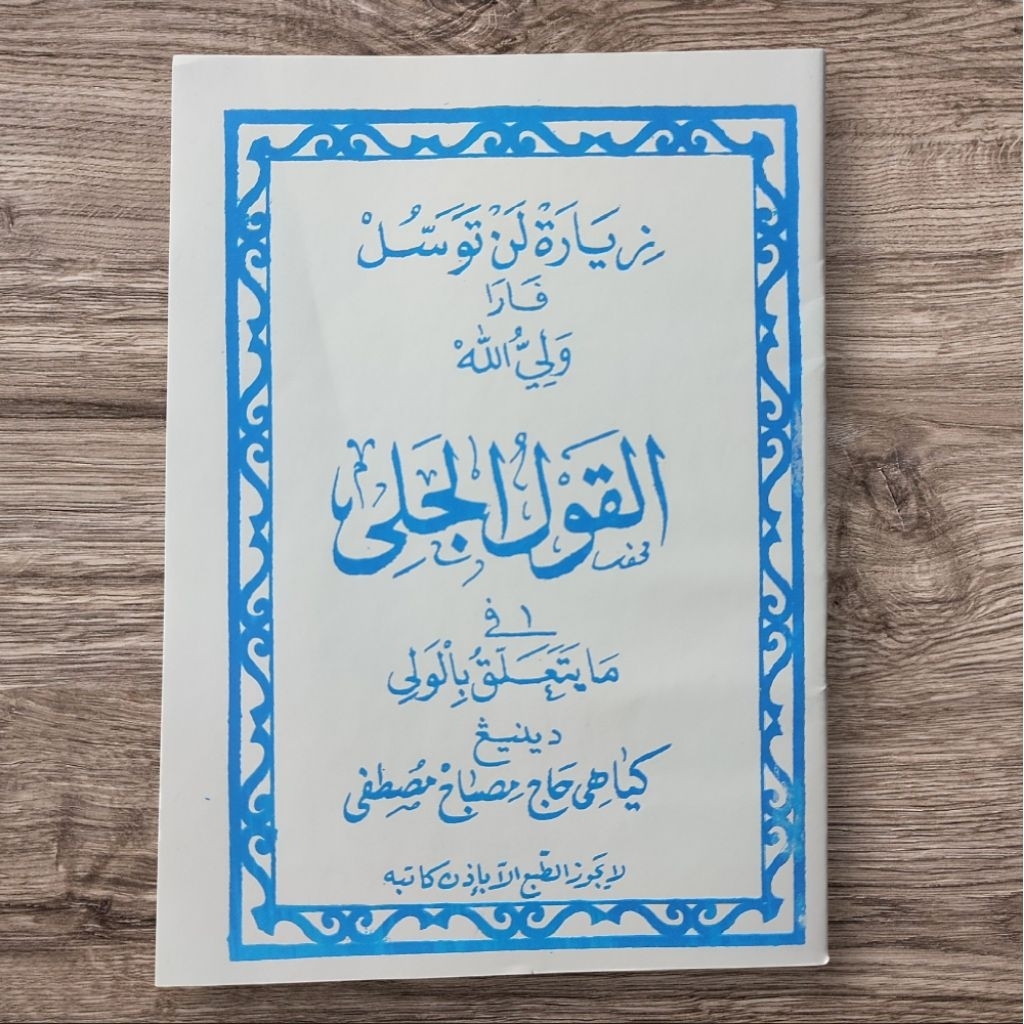 زِيَارَةْ لَنْ تَوَسَّلْ
فَارَا
وَلِيُّ اللّٰهْ
القَوْلُ الجَلِى
فى
مَا يَتَعَلَّقُ بِالْوَلِي
دينيڠ
كياهى حَاج مِصبَاحْ مُصْطفى
لا يجوز الطبع الا بإذن كاتبه